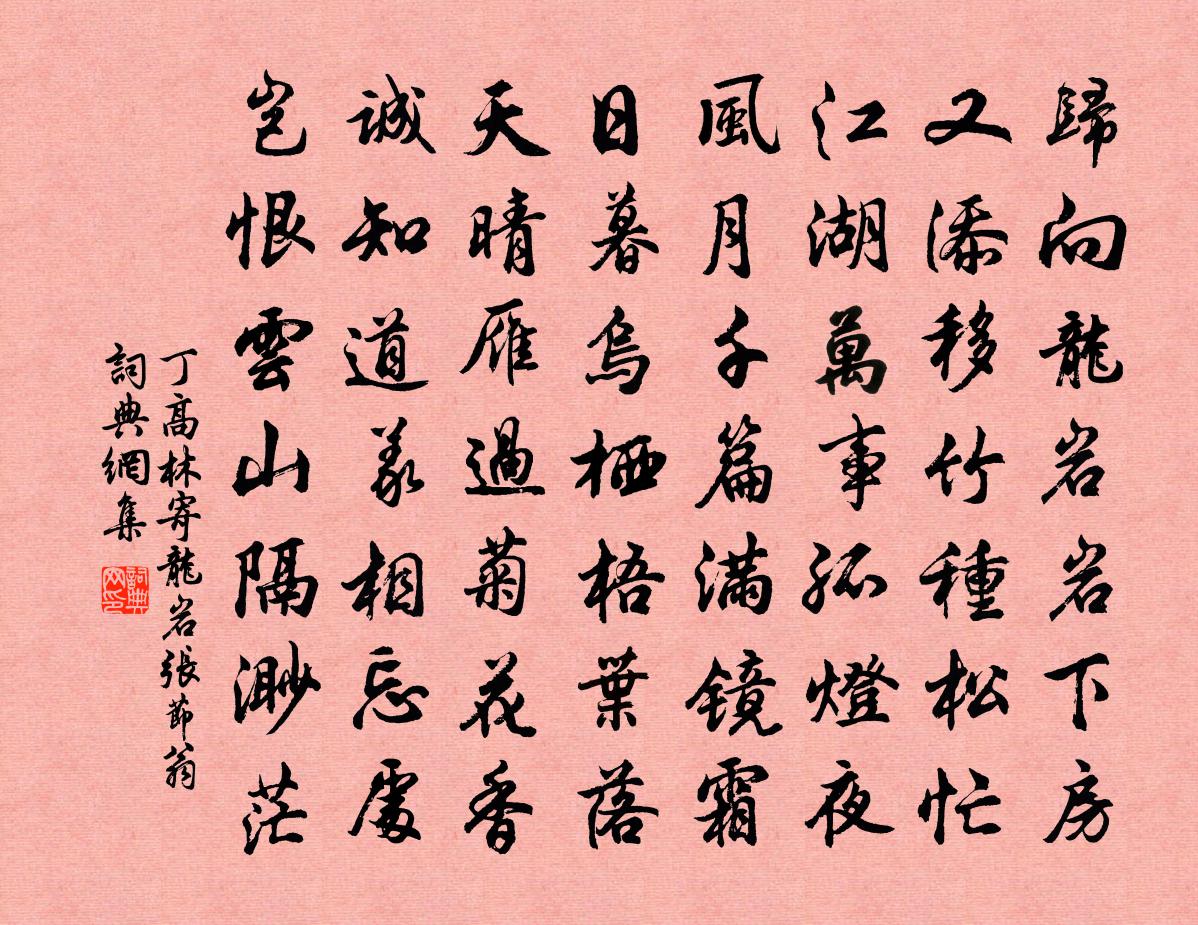 歸向龍岩岩下房
又添移竹種松忙
江湖萬事孤燈夜
風月千篇滿鏡霜
日暮烏栖梧葉落
天晴雁過菊花香
誠知道義相忘處
豈恨雲山隔渺茫
丁高林寄龍岩張節翁
詞典網集
詞典网印